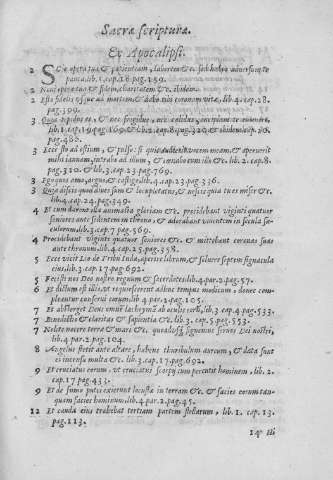 Sacræ scripturæ.
Ex Apocalipsi.
2 SCio opera tua & patientiam, laborem &c. sed habeo adversum te
pauca. lib. 1. cap. 18. pag. 159.
2 Novi opera tua & fidem, charitatem &c. ibidem.
2 Esto fidelis usque ad mortem & dabo tibi coronam vitæ, lib. 4. cap. 28.
pag. 399.
3 Quia tepidus es, & nec frigidus, nec calidus, incipiam te evomere,
lib. 1. cap. 19. pag. 169. & lib. 2. cap. 8. pag. 320. & ibidem cap. 30.
pag. 460.
3 Ecce sto ad ostium, & pulso: si quis audierit vocem meam, & aperuerit
mihi ianuam, intrabo ad illum, & cœnabo cum illo &c. lib. 2. cap. 8.
pag. 320. & lib. 3. cap. 23. pag. 769.
3 Ego quos amo, arguo & castigo, lib. 4. cap. 23. pag. 336.
3 Quia dicis quod dives sum & locupletatus, & nescis quia tu es miser &c.
lib. 4. cap. 24. pag. 349.
4 Et cum darent illa animalia gloriam &c. procidebant viginti quatuor
seniores ante sedentem in throno, & adorabant viventem in sæcula sæ-
culorum, lib. 3. cap. 7. pag. 569.
4 Procidebant viginti quatuor seniores &c. & mittebant coronas suas
ante thronum, lib. 4. cap. 25. pag. 358.
5 Ecce vicit Leo de Tribu Iuda, aperire librum, & solvere septem signacula
eius, lib. 3. cap. 17. pag. 692.
5 Fecisti nos Deo nostro regnum & sacerdotes, lib. 4. par. 2. pag. 57.
6 Et dictum est illi, ut requiescerent adhuc tempus modicum, donec com-
pleantur conservi eorum, lib. 4. par. 2. pag. 105.
7 Et absterget Deus omnem lachrymam ab oculis eorum, lib. 3. cap. 4. pag. 533.
7 Benedictio & claritas & sapientia &c. lib. 3. cap. 5. pag. 553.
7 Nolite nocere terræ & mari &c. quoadusque signemus servos Dei nostri,
lib. 4. par. 2. pag. 104.
8 Angelus stetit ante altare, habens thuribulum aureum, & data sunt
ei incensa multa &c. lib. 3. cap. 17. pag. 693.
9 Et cruciatus eorum, ut cruciatus scorpij cum percutit hominem, lib. 2.
cap. 17. pag. 433.
9 Et de fumo putei exierunt locustæ in terram &c. & facies earum tan-
quam facies hominum, lib. 4. par. 2. pag. 45.
12 Et cauda eius trahebat tertiam partem stellarum, lib. 2. cap. 13.
pag. 113.